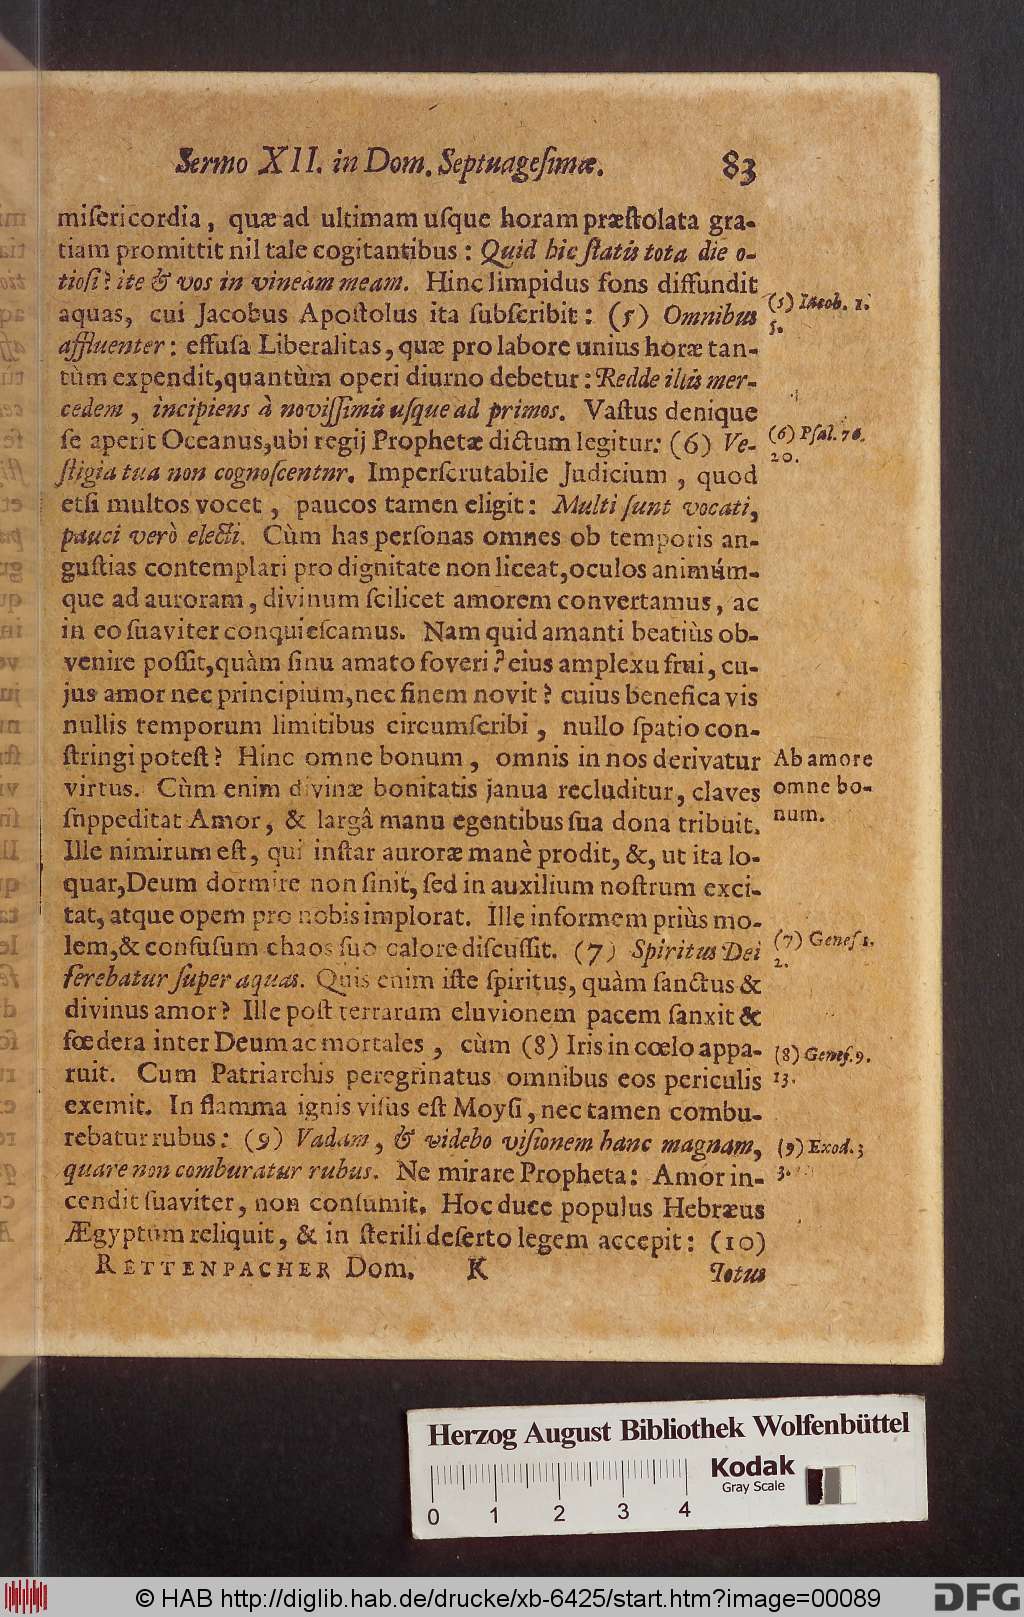 Sermo XII. in Dom. Septuageſimæ. 83
miſericordia, quæ ad ultimam uſque horam præſtolata gra-
tiam promittit nil tale cogitantibus: Quid hic ſtatis tota die o-
tioſi? ite & vos in vineam meam. Hinc limpidus fons diffundit
aquas, cui Jacobus Apoſtolus ita ſubſcribit: (5) Omnibus
affluenter: effuſa Liberalitas, quæ pro labore unius horæ tan-
tùm expendit, quantùm operi diurno debetur: Redde illis mer-
cedem, incipiens à noviſſimis uſque ad primos. Vaſtus denique
ſe aperit Oceanus, ubi regij Prophetæ dictum legitur: (6) Ve-
ſtigia tua non cognoſcentnr. Imperſcrutabile Judicium, quod
etſi multos vocet, paucos tamen eligit: Multi ſunt vocati,
pauci verò electi. Cùm has perſonas omnes ob temporis an-
guſtias contemplari pro dignitate non liceat, oculos animúm-
que ad auroram, divinum ſcilicet amorem convertamus, ac
in eo ſuaviter conquieſcamus. Nam quid amanti beatiùs ob-
venire poſſit, quàm ſinu amato foveri? eius amplexu frui, cu-
jus amor nec principium, nec finem novit? cuius benefica vis
nullis temporum limitibus circumſcribi, nullo ſpatio con-
ſtringi poteſt? Hinc omne bonum, omnis in nos derivatur
virtus. Cùm enim divinæ bonitatis janua recluditur, claves
ſnppeditat Amor, & largâ manu egentibus ſua dona tribuit.
Ille nimirum eſt, qui inſtar auroræ manè prodit, &, ut ita lo-
quar, Deum dormire non ſinit, ſed in auxilium noſtrum exci-
tat, atque opem pro nobis implorat. Ille informem priùs mo-
lem, & confuſum chaos ſuo calore diſcuſſit. (7) Spiritus Dei
ferebatur ſuper aquas. Quis enim iſte ſpiritus, quàm ſanctus &
divinus amor? Ille poſt terrarum eluvionem pacem ſanxit &
fœdera inter Deum ac mortales, cùm (8) Iris in cœlo appa-
ruit. Cum Patriarchis peregrinatus omnibus eos periculis
exemit. In flamma ignis viſus eſt Moyſi, nec tamen combu-
rebatur rubus: (9) Vadam, & videbo viſionem hanc magnam,
quare non comburatur rubus. Ne mirare Propheta: Amor in-
cendit ſuaviter, non conſumit. Hoc duce populus Hebræus
Ægyptum reliquit, & in ſterili deſerto legem accepit: (10)
RETTENPACHER Dom. K Totus
(5) Iacob. 1.
5.
(6) Pſal. 76.
20.
Ab amore
omne bo-
num.
(7) Geneſ 1.
2.
(8) Geneſ. 9.
13.
(9) Exod. 3
3.
Herzog August Bibliothek Wolfenbüttel
Kodak
Gray Scale
0 1 2 3 4
© HAB http://diglib.hab.de/drucke/xb-6425/start.htm?image=00089
DFG